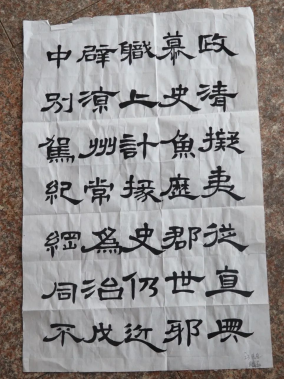 政清擬夷從直
慕史魚歷郡世邪
職上計掾史仍近
辟涼州常爲治戊
中別駕紀綱同不